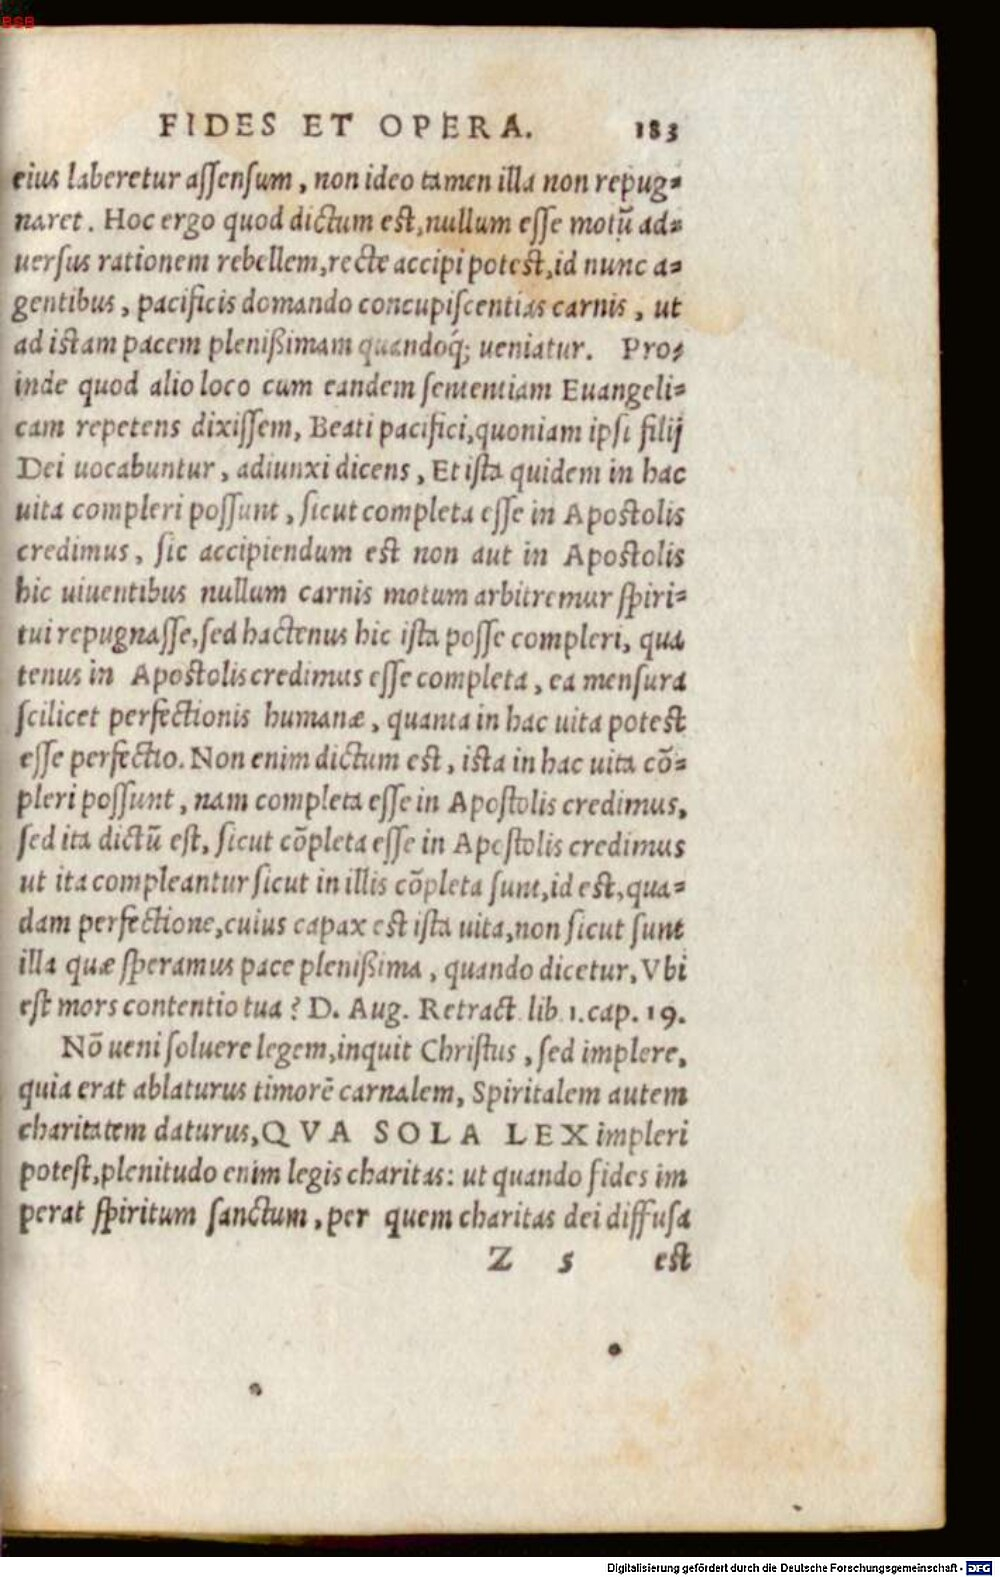 BSB
FIDES ET OPERA. 183
eius laberetur assensum, non ideo tamen illa non repug-
naret. Hoc ergo quod dictum est, nullum esse motũ ad-
uersus rationem rebellem, recte accipi potest, id nunc a-
gentibus, pacificis domando concupiscentias carnis, ut
ad istam pacem plenißimam quandoq́; ueniatur. Pro-
inde quod alio loco cum eandem sententiam Euangeli-
cam repetens dixissem, Beati pacifici, quoniam ipsi filij
Dei uocabuntur, adiunxi dicens, Et ista quidem in hac
uita compleri possunt, sicut completa esse in Apostolis
credimus, sic accipiendum est non aut in Apostolis
hic uiuentibus nullum carnis motum arbitremur spiri-
tui repugnasse, sed hactenus hic ista posse compleri, qua
tenus in Apostolis credimus esse completa, ea mensura
scilicet perfectionis humanæ, quanta in hac uita potest
esse perfectio. Non enim dictum est, ista in hac uita cõ-
pleri possunt, nam completa esse in Apostolis credimus,
sed ita dictũ est, sicut cõpleta esse in Apostolis credimus
ut ita compleantur sicut in illis cõpleta sunt, id est, qua-
dam perfectione, cuius capax est ista uita, non sicut sunt
illa quæ speramus pace plenißima, quando dicetur, Vbi
est mors contentio tua? D. Aug. Retract. lib. 1. cap. 19.
Nõ ueni soluere legem, inquit Christus, sed implere,
quia erat ablaturus timorẽ carnalem, Spiritalem autem
charitatem daturus, QVA SOLA LEX impleri
potest, plenitudo enim legis charitas: ut quando fides im
perat spiritum sanctum, per quem charitas dei diffusa
Z 5 est
Digitalisierung gefördert durch die Deutsche Forschungsgemeinschaft - DFG